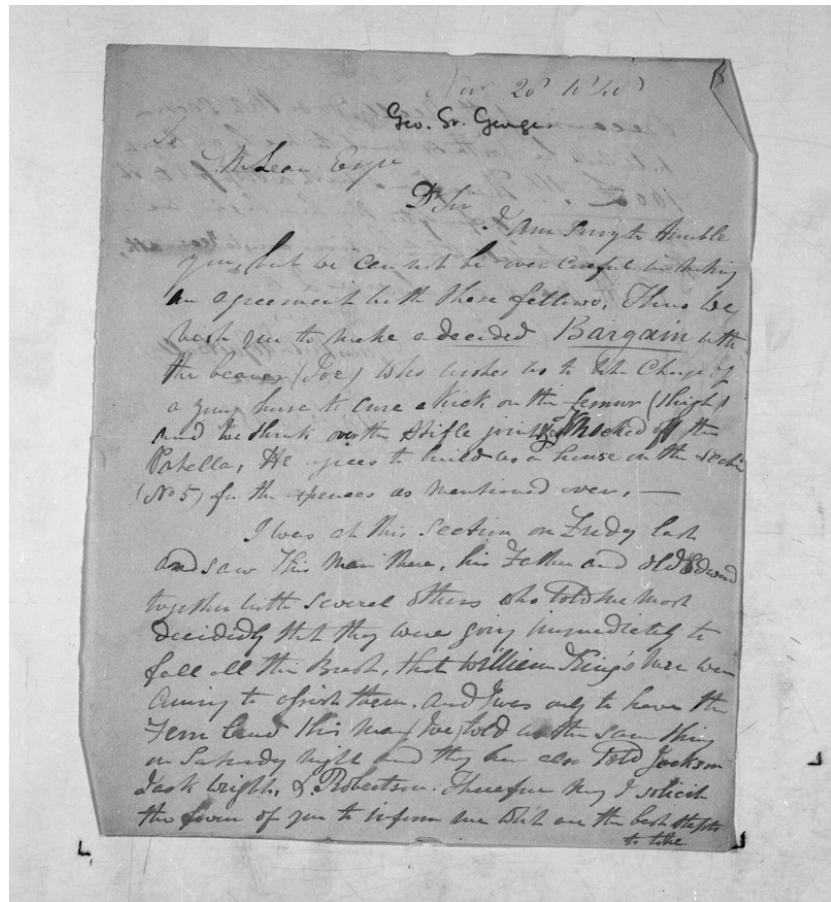 Nov. 28
Geo. St. George
To
McLean Esqre
Dr Sir
I am sorry to trouble
you, but we can not be over careful in making
an agreement with these fellows. Thus we
wish you to make a decided Bargain with
the bearer (Joe) who wishes us to take charge of
a young horse to cure a kick on the femur (thigh)
and we think over the stifle joint knocked off the
Patella, He agrees to build us a house on the section
(No 5) for the expences as mentioned over. —
I was at this section on Friday last
and saw this man there, his Father and old Edward
together with several others who told me most
decidedly that they were going immediately to
fall all the Brush, that William King's men were
coming to assist them. and I was only to have the
Fern land this man (Joe) told us the same thing
on Saturday night and they have also told Jackson
Jack Wright, & Robertson. Therefore may I solicit
the favor of you to inform me which are the best steps
to take